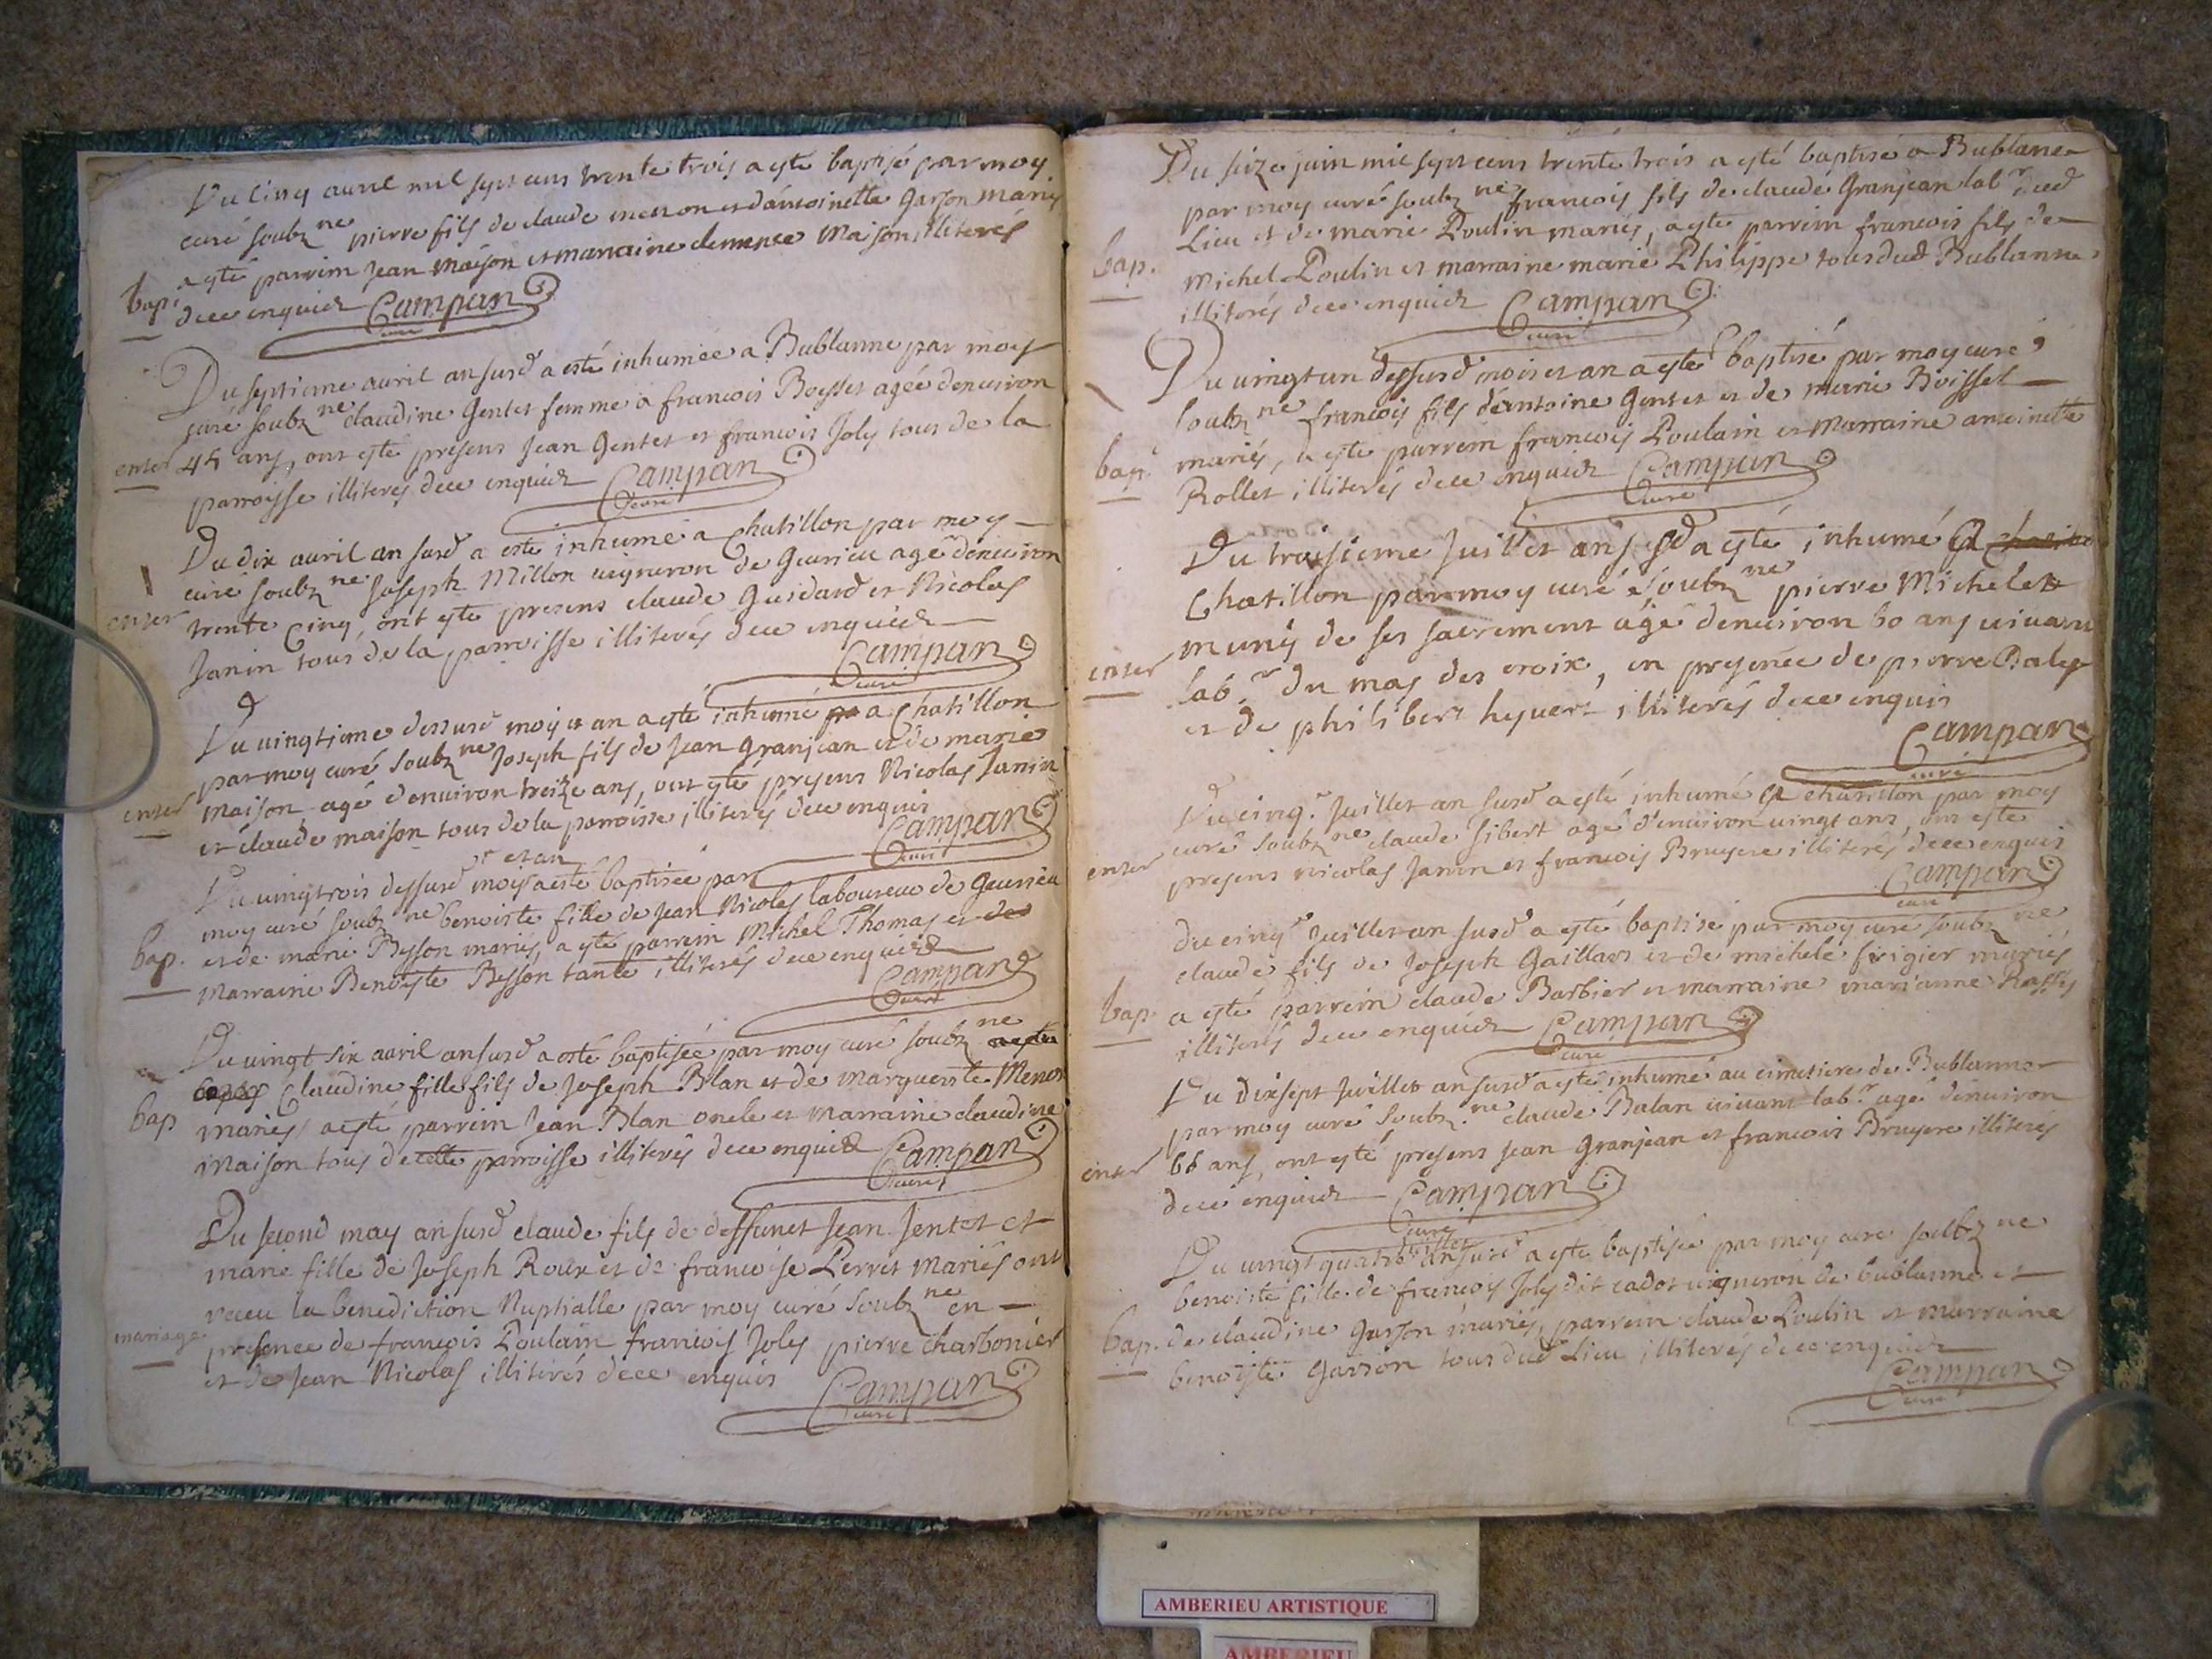 Du cinq avril mil sept cens trente trois a esté baptisé par moy
curé soubz ne pierre fils de claude menon et d'antoinette Garson mariés
a esté parrein Jean Maison et marraine clemence Maison, illiterés
bap. de ce enquiest Campan
curé
Du septieme avril an susd a esté inhumée a Bublanne par moy
curé soubz ne claudine Gentet femme a francois Boysset agée denviron
enter 45 ans, ont esté presens Jean Gentet et francois Joly tous de la
parroisse illiterés de ce enquiest Campan
curé
Du dix avril an susd a esté inhumé a Chatillon par moy
curé soubz ne Joseph Millon vigneron de Gevrieu agé denviron
enter trente Cinq, ont esté presens claude Guidard et Nicolas
Janin tous de la parroisse illiterés de ce enquiest
Campan
curé
Du vingtieme dessusd moy et an a esté inhumé a Chatillon
par moy curé soubz ne Joseph fils de Jean Granjean et de marie
enter maison, agé d'environ treize ans, ont esté presens Nicolas Janin
et claude maison tous de la parroisse illiterés de ce enquis
Campan
curé
et an
Du vingtrois dessusd moy a esté baptisée par
moy curé soubz ne benoiste fille de Jean Nicolas laboureur de Gevrieu
bap. et de marie Besson mariés, a esté parrein Michel Thomas et de
Marraine Benoyste Besson tante illiterés de ce enquiest
Campan
curé
Du vingt six avril an susd a esté baptisée par moy curé soubz ne
Claudine fille fils de Joseph Blan et de Marguerite Menon
bap mariés, a esté parrein Jean Blan oncle et Marraine claudine
Maison tous de celle parroisse illiterés de ce enquiest Campan
curé
Du second may an susd claude fils de deffunct Jean Jentet et
marie fille de Joseph Roux et de francoise Perret mariés ont
receu la benediction Nuptialle par moy curé soubz ne en
mariage presence de francois Poulain francois Joly pierre charbonier
et de Jean Nicolas illiterés de ce enquis Campan
curé
Du seize juin mil sept cens trente trois a esté baptisé a Bublane
par moy curé soubz ne francois fils de claude Granjean labr dud
Lieu et de marie Poulin mariés, a esté parrein francois fils de
bap. Michel Poulin et marraine marie Philippe tous dud Bublanne
illiterés de ce enquiest Campan
curé
Du vingt un dessusd mois et an a esté baptisé par moy curé
soubz ne francois fils d'antoine Gentet et de marie Boisset
bap. mariés, a esté parrein francois Poulain et Marraine antoinette
Rollet illiterés de ce enquiest Campan
curé
Du troisieme Juillet an susd a esté inhumé a
Chatillon par moy curé soubz ne pierre Michelet
muny de ses sacrement agé denviron 60 ans vivant
enter labr du mas des croix, en presence de pierre Baley
et de philibert heyvert illiterés de ce enquis
Campan
curé
Du cinq. Juillet an susd a esté inhumé a chatillon par moy
curé soubz ne claude sibert agé d'environ vingt ans, ont esté
enter presens nicolas Janin et francois Bruyere illiterés de ce enquis
Campan
curé
Du cinq Juillet an susd a esté baptisé par moy curé soubz ne
claude fils de Joseph Gaillard et de michele frigier mariés
bap. a esté parrein claude Barbier et marraine marianne
illiterés de ce enquiest Campan
curé
Du dixsept Juillet an susd a esté inhumé au cimetiere de Bublanne
par moy curé soubz. ne claude Balan vivant labr. agé denviron
enter 66 ans, ont esté presens Jean Granjean et francois Bruyere illiterés
de ce enquiest Campan
curé
Juillet
Du vingt quatre an susd a esté baptisée par moy curé soubz ne
benoiste fille de francois Joly dit cadot vigneron de bublanne et
bap. de claudine Garson mariés, parrein claude Poulin et marraine
benoiste Garson tous dud Lieu illiterés de ce enquiest
Campan
curé
AMBERIEU ARTISTIQUE
AMBERIEU